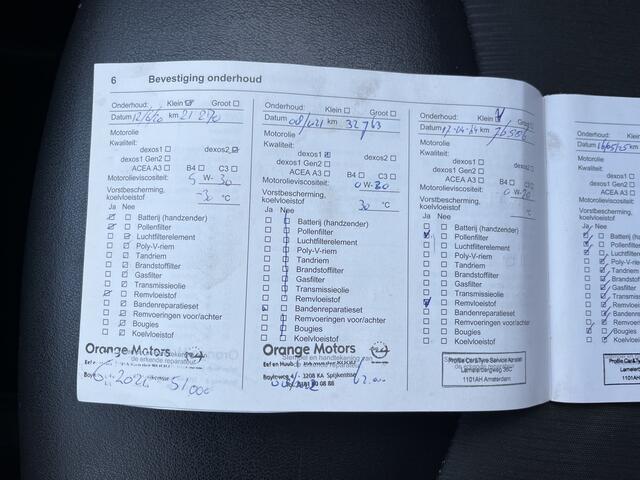 6 Bevestiging onderhoud
Onderhoud: Klein Groot
Datum 12/6/20 km 21 270
Motorolie
Kwaliteit:
dexos1 dexos2
dexos1 Gen2
ACEA A3 B4 C3
Motorolieviscositeit: 5 W- 30
Vorstbescherming,
koelvloeistof -30 °C
Ja Nee
Batterij (handzender)
Pollenfilter
Luchtfilterelement
Poly-V-riem
Tandriem
Brandstoffilter
Gasfilter
Transmissieolie
Remvloeistof
Bandenreparatieset
Remvoeringen voor/achter
Bougies
Koelvloeistof
Orange Motors
51000
Onderhoud: Klein Groot
Datum 08/021 km 32 763
Motorolie
Kwaliteit:
dexos1 dexos2
dexos1 Gen2
ACEA A3 B4 C3
Motorolieviscositeit: 0 W-20
Vorstbescherming,
koelvloeistof 30 °C
Ja Nee
Batterij (handzender)
Pollenfilter
Luchtfilterelement
Poly-V-riem
Tandriem
Brandstoffilter
Gasfilter
Transmissieolie
Remvloeistof
Bandenreparatieset
Remvoeringen voor/achter
Bougies
Koelvloeistof
Orange Motors
Stempel en handtekening van
de erkende reparateur
Bayleweg 4 - 3208 KA Spijkenisse
Onderhoud: Klein Groot
Datum 17-04-24 km 76556
Motorolie
Kwaliteit:
dexos1 dexos2
dexos1 Gen2
ACEA A3 B4 C3
Motorolieviscositeit: 0 W-20
Vorstbescherming,
koelvloeistof °C
Ja Nee
Batterij (handzender)
Pollenfilter
Luchtfilterelement
Poly-V-riem
Tandriem
Brandstoffilter
Gasfilter
Transmissieolie
Remvloeistof
Bandenreparatieset
Remvoeringen voor/achter
Bougies
Koelvloeistof
Profile Car&Tyre Service
1101AH Amsterdam
Onderhoud: Klein
Datum 16/05/25 km
Motorolie
Kwaliteit:
dexos1
dexos1 Gen2
ACEA A3
Motorolieviscositeit:
Vorstbescherming,
koelvloeistof
Ja Nee
Batterij (hand
Pollenfilter
Luchtfilterele
Poly-V-riem
Tandriem
Brandstoffilter
Gasfilter
Transmissieolie
Remvloeistof
Bandenreparat
Remvoeringen
Bougies
Koelvloeistof
1101AH